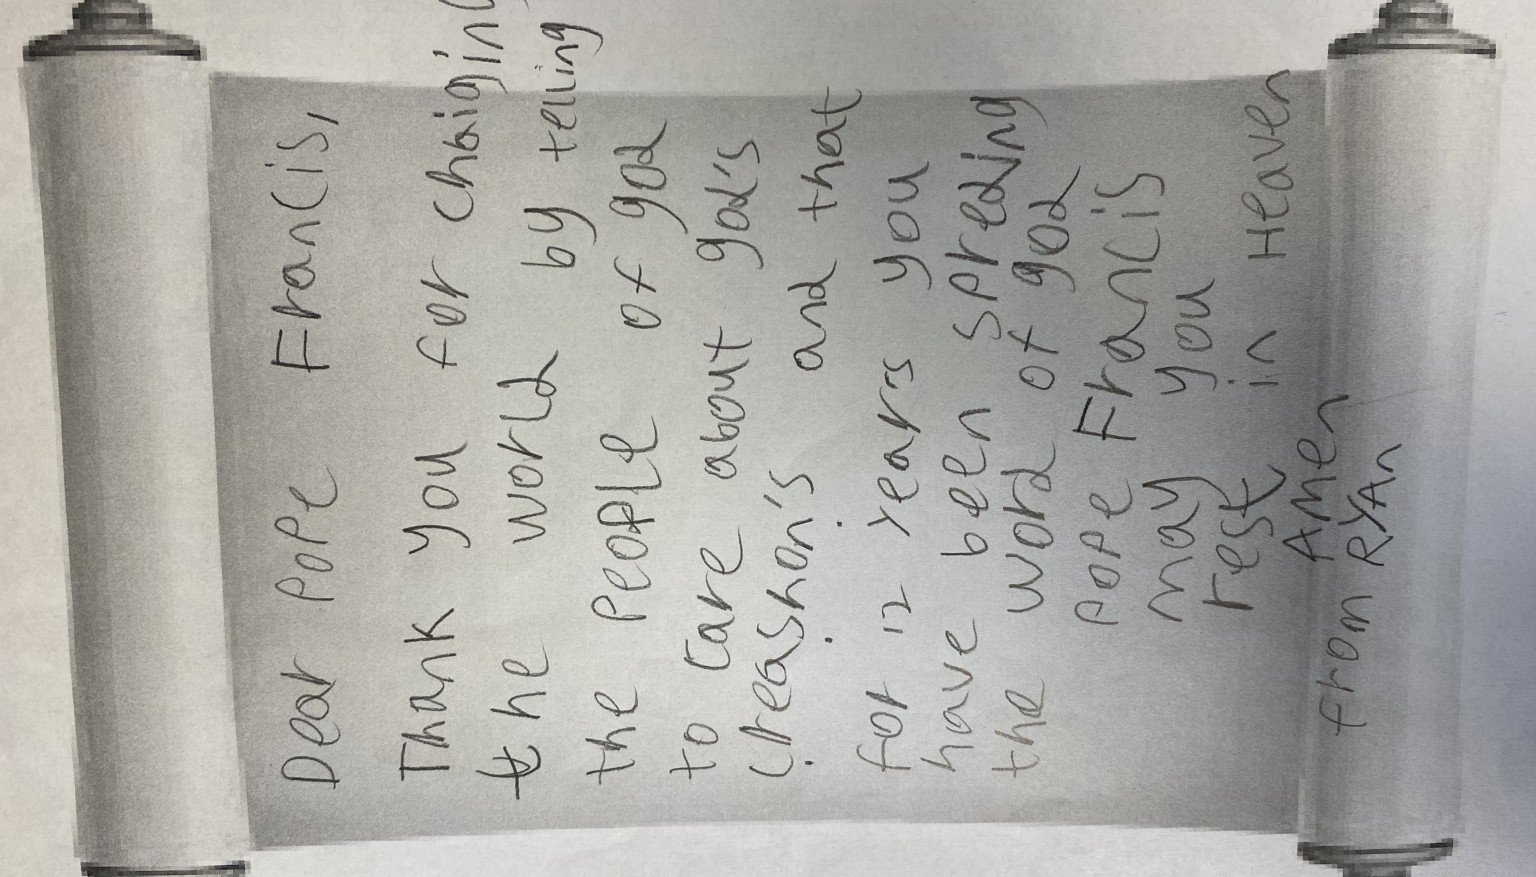 Dear Pope Francis,
Thank you for chaiging
the world by telling
the people of god
to care about god's
creashon's and that
for 12 years you
have been spreding
the word of god
Pope Francis
may you
rest in Heaven
Amen
from RYAn